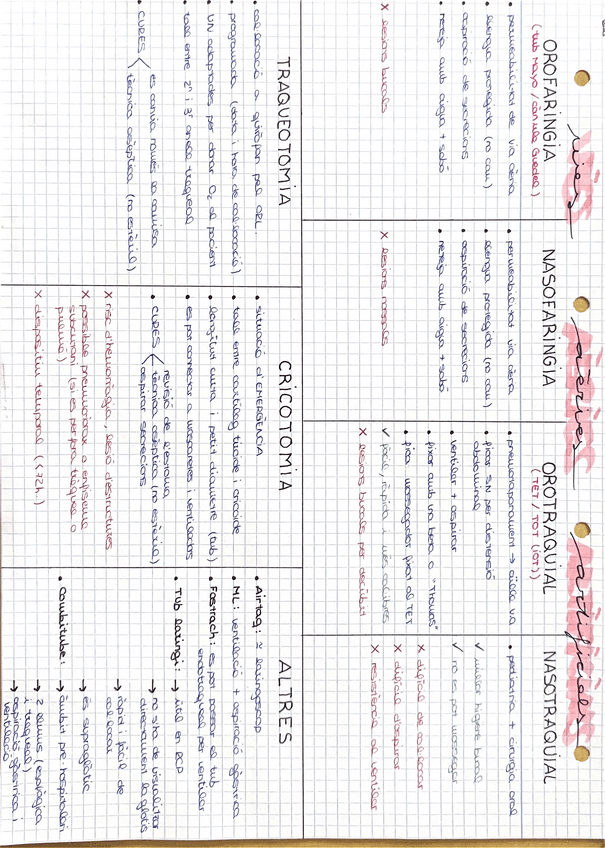 vies aèries artificials
OROFARINGIA
(tub Mayo / cànula Guedel)
• permeabilitat de via aèria
• llengua protegida (no cau)
• aspiració de secrecions
• neteja amb aigua + sabó
X lesions bucals
NASOFARINGIA
• permeabilitat via aèria
• llengua protegida (no cau)
• aspiració de secrecions
• neteja amb aigua + sabó
X lesions nasals
OROTRAQUIAL
(TET / TOT (IOT))
• pneumotaponament → aïlla va
• fixar SN per distensió
abdominal
• ventilar + aspirar
• fixar amb una beta o "Thomas"
• fixa mossegador fixat al TET
✓ fàcil, ràpida i més calibres
X lesions bucals per decúbit
NASOTRAQUIAL
• pediatria + cirurgia oral
✓ millor higiene bucal
✓ no es pot mossegar
X difícil de col·locar
X difícil d'aspirar
X resistència al ventilar
TRAQUEOTOMIA
• col·locació a quiròfan pel ORL.
• programada (data i hora de col·locació)
• VN adaptades per donar O2 al pacient
• tall entre 2n i 3r anell traqueal
• CURES < es canvia només la camisa
tècnica asèptica (no estèril)
CRICOTOMIA
• situació d'EMERGÈNCIA
• tall entre cartílag tiroide i cricoide
• llargitud curta i petit diàmetre (tub)
• es pot connectar a mapelsons i ventiladors
• CURES < revisió de l'estoma
tècnica asèptica (no estèril)
aspirar secrecions
X risc d'hemorràgia, lesió d'estructures
X possible pneumotòrax o enfisema
subcutani (si es perfora tràquea o
pulmó)
X dispositiu temporal (<72h.)
ALTRES
• Airtaq: ≈ laringoscop
• ML: ventilació + aspiració gàstrica
• Fastrach: es pot passar el tub
endotraqueal per ventilar
• Tub laringi: → útil en RCP
→ no s'ha de visualitzar
directament la glotis
→ ràpid i fàcil de
col·locar
→ és supraglòtic
• Combitube: → àmbit pre-hospitalari
→ 2 llums (esofàgica
i traqueal)
→ aspiració gàstrica i
ventilació